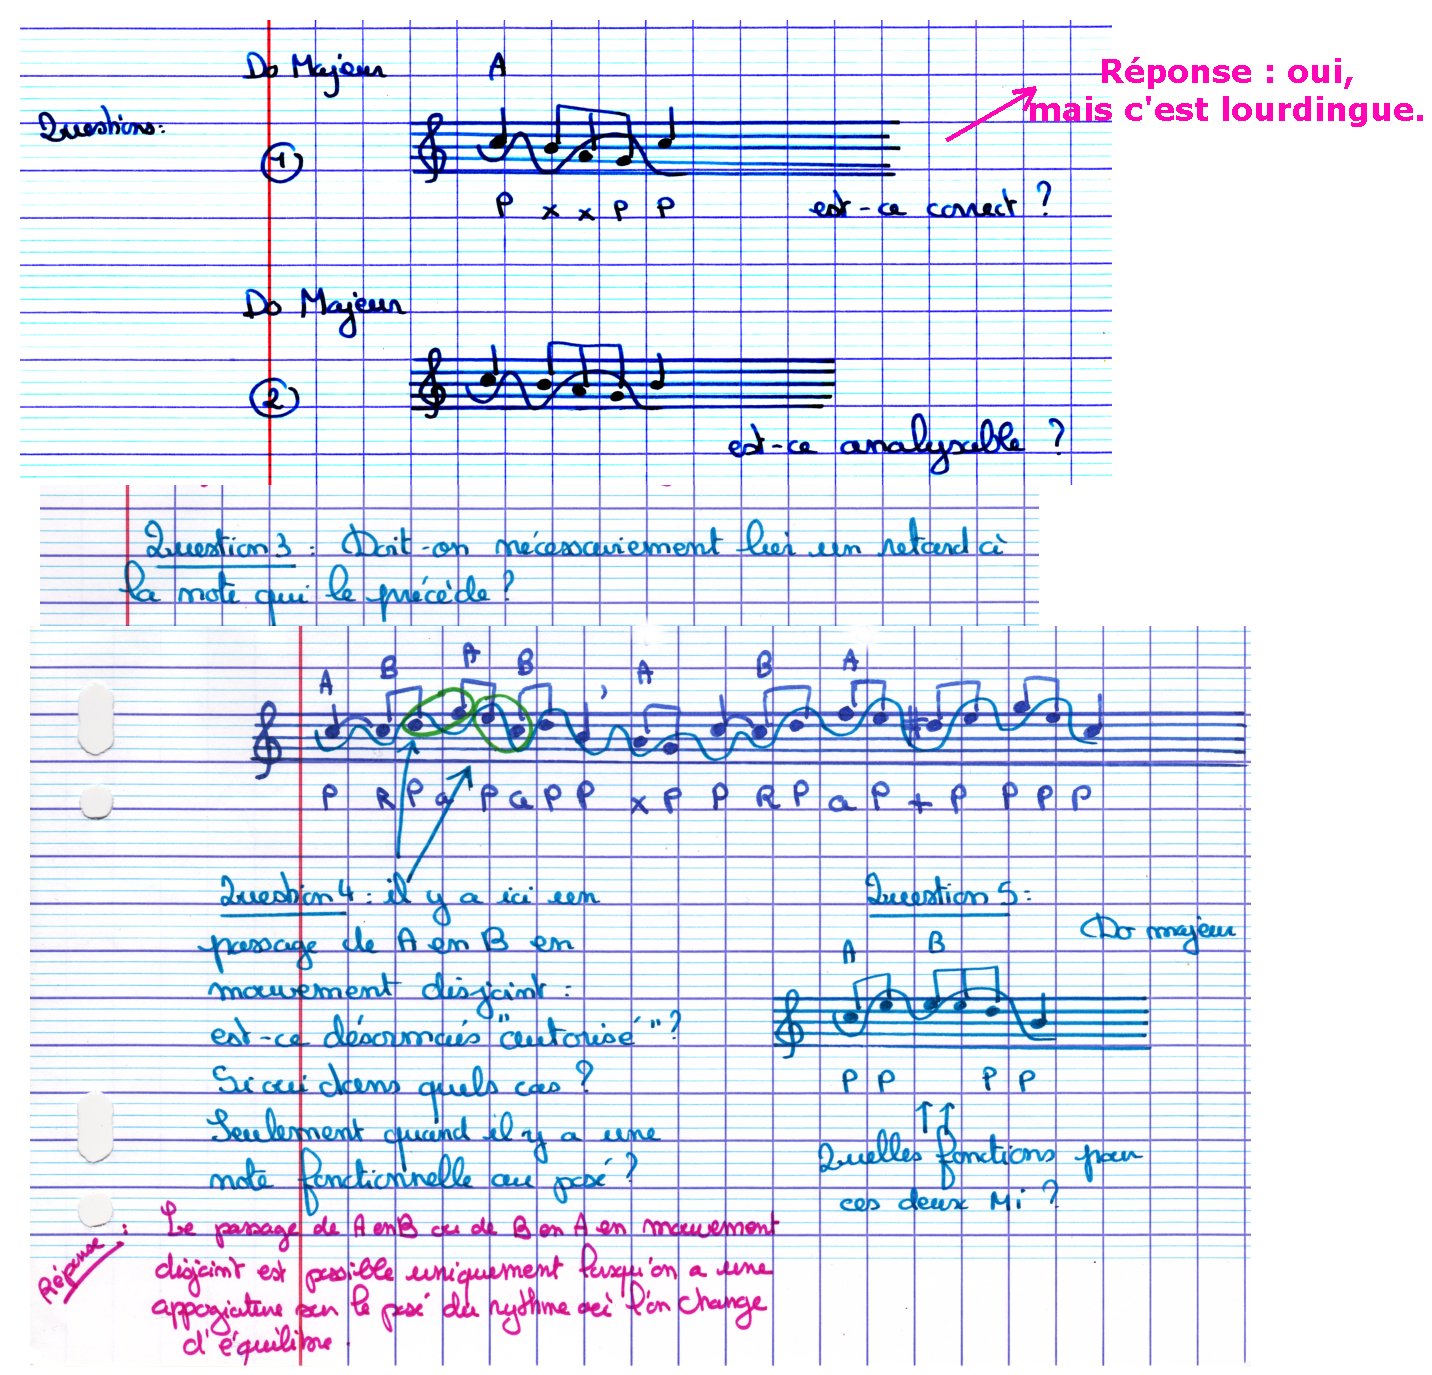 Do Majeur A
Réponse : oui,
mais c'est lourdingue.
Questions:
1
P x x P P
est-ce correct ?
Do Majeur
2
est-ce analysable ?
Question 3 : Doit-on nécessairement lier un retard à
la note qui le précède ?
A B A B A B A
P R P a P a P P x P P R P a P + P P P P
Question 4 : il y a ici un
passage de A en B en
mouvement disjoint :
est-ce désormais "autorisé" ?
Si oui dans quels cas ?
Seulement quand il y a une
note fonctionnelle au posé ?
Question 5 :
Do majeur
A B
P P P P
Quelles fonctions pour
ces deux Mi ?
Réponse : Le passage de A en B ou de B en A en mouvement
disjoint est possible uniquement lorsqu'on a une
appogiature sur le posé du rythme où l'on change
d'équilibre.